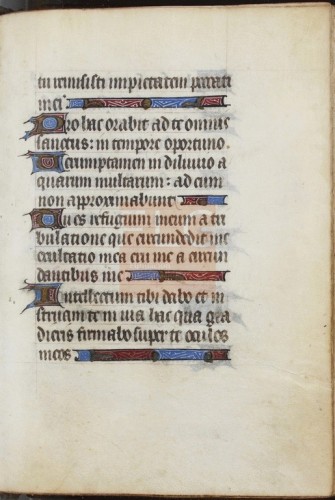 tu remisisti impietatem peccati
mei
Pro hac orabit ad te omnis
sanctus: in tempore oportuno.
Verumptamen in diluvio a
quarum multarum: ad eum
non approximabunt
Tu es refugium meum a tri
bulatione que circundedit me
exultatio mea erue me a circun
dantibus me
Intellectum tibi dabo et in
struam te in via hac qua gra
dieris firmabo super te oculos
meos